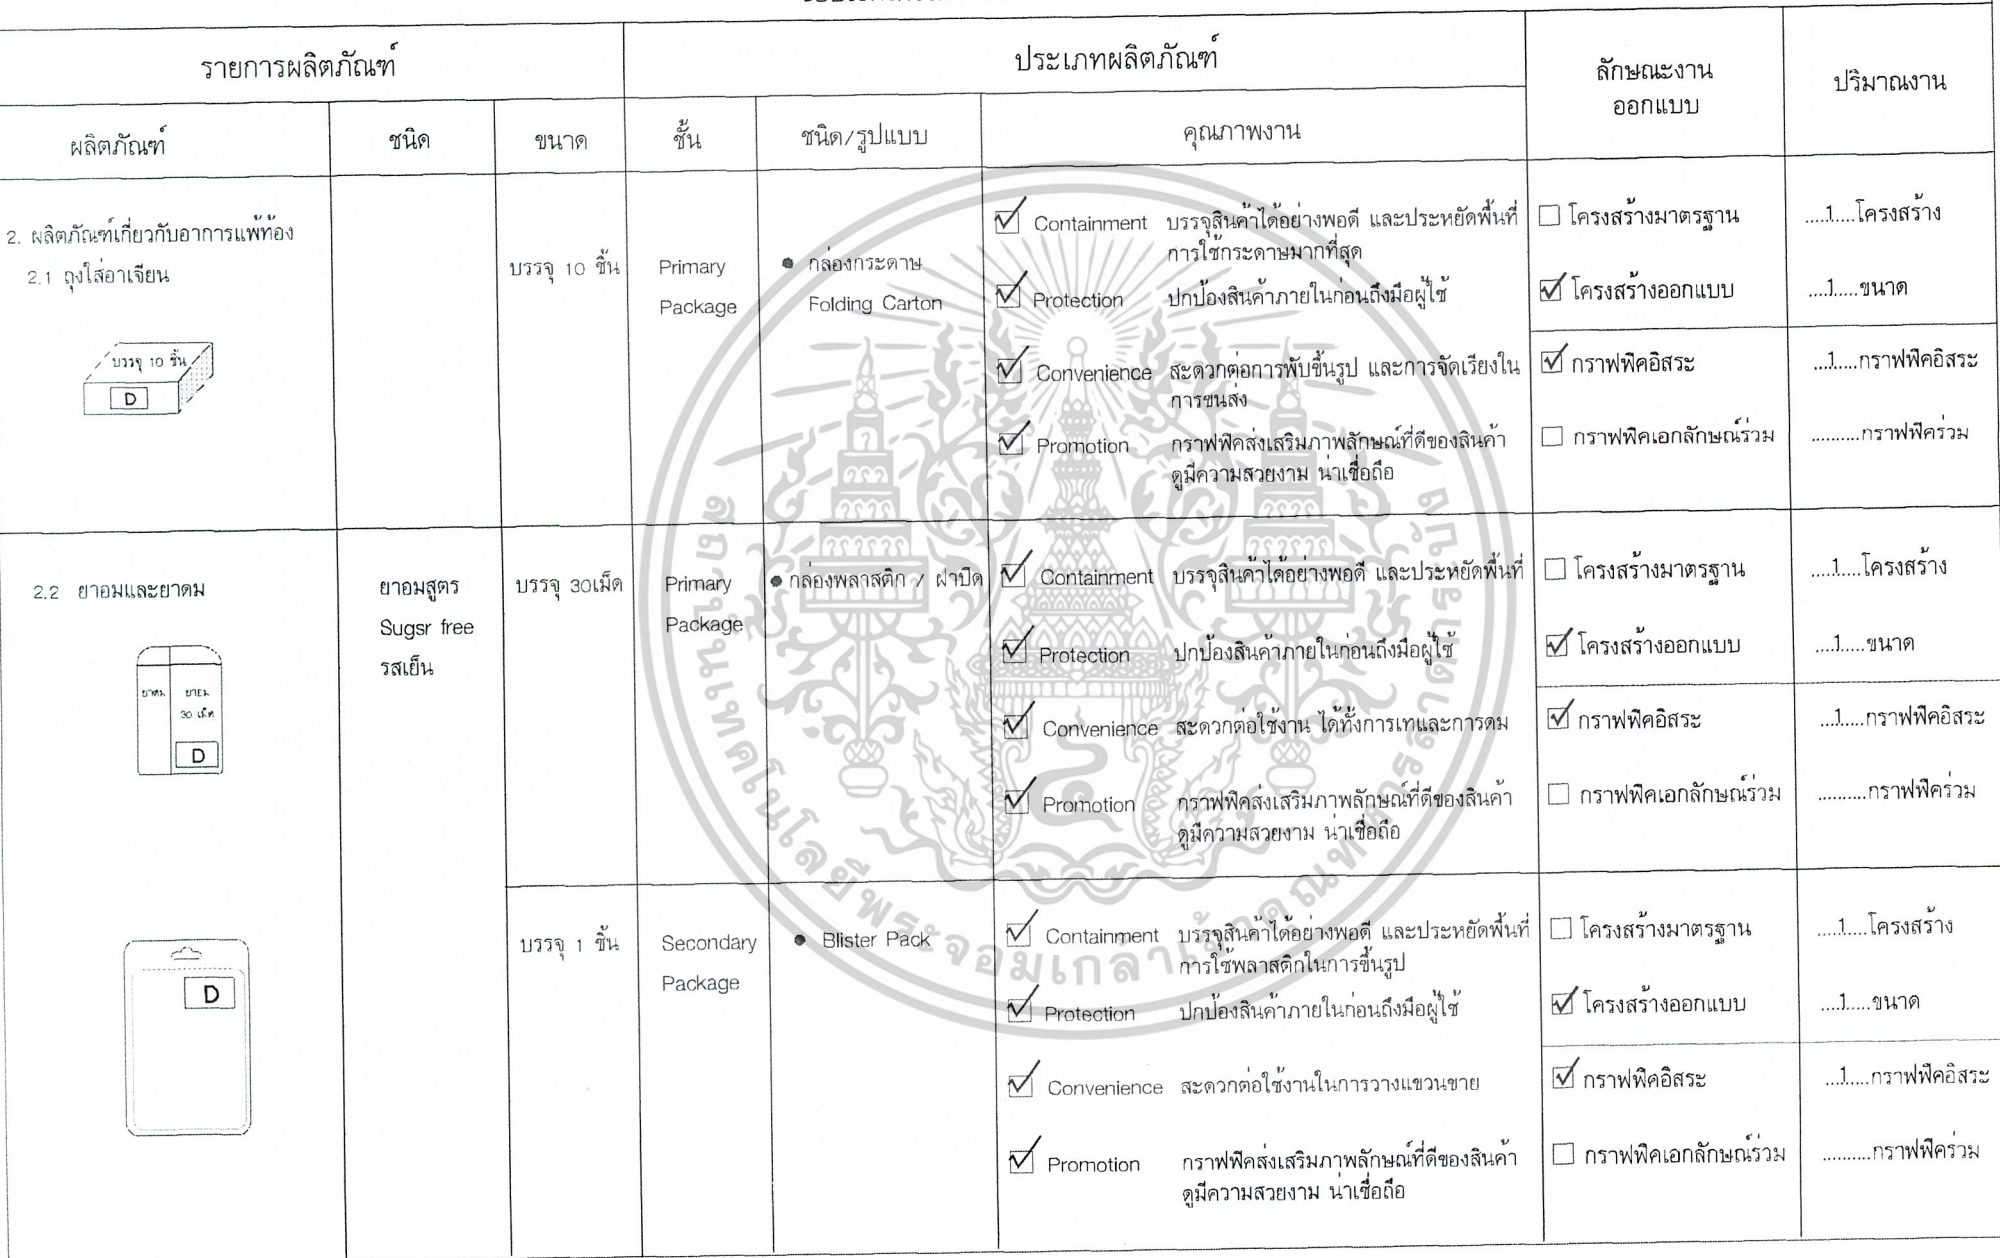 รายการผลิตภัณฑ์
ประเภทผลิตภัณฑ์
ลักษณะงาน
ออกแบบ
ปริมาณงาน
ผลิตภัณฑ์
ชนิด
ขนาด
ชั้น
ชนิด/รูปแบบ
คุณภาพงาน
2. ผลิตภัณฑ์เกี่ยวกับอาการแพ้ท้อง
2.1 ถุงใส่อาเจียน
บรรจุ 10 ชิ้น
D
บรรจุ 10 ชิ้น
Primary
Package
● กล่องกระดาษ
Folding Carton
☑ Containment บรรจุสินค้าได้อย่างพอดี และประหยัดพื้นที่
การใช้กระดาษมากที่สุด
☑ Protection ปกป้องสินค้าภายในก่อนถึงมือผู้ใช้
☑ Convenience สะดวกต่อการพับขึ้นรูป และการจัดเรียงใน
การขนส่ง
☑ Promotion กราฟฟิคส่งเสริมภาพลักษณ์ที่ดีของสินค้า
ดูมีความสวยงาม น่าเชื่อถือ
☐ โครงสร้างมาตรฐาน
☑ โครงสร้างออกแบบ
☑ กราฟฟิคอิสระ
☐ กราฟฟิคเอกลักษณ์ร่วม
....1....โครงสร้าง
....1.....ขนาด
...1.....กราฟฟิคอิสระ
..........กราฟฟิคร่วม
2.2 ยาอมและยาดม
ยาดม
ยาอม
30 เม็ด
D
ยาอมสูตร
Sugsr free
รสเย็น
บรรจุ 30เม็ด
Primary
Package
● กล่องพลาสติก / ฝาปิด
☑ Containment บรรจุสินค้าได้อย่างพอดี และประหยัดพื้นที่
☑ Protection ปกป้องสินค้าภายในก่อนถึงมือผู้ใช้
☑ Convenience สะดวกต่อใช้งาน ได้ทั้งการเทและการดม
☑ Promotion กราฟฟิคส่งเสริมภาพลักษณ์ที่ดีของสินค้า
ดูมีความสวยงาม น่าเชื่อถือ
☐ โครงสร้างมาตรฐาน
☑ โครงสร้างออกแบบ
☑ กราฟฟิคอิสระ
☐ กราฟฟิคเอกลักษณ์ร่วม
.....1....โครงสร้าง
....1.....ขนาด
...1.....กราฟฟิคอิสระ
..........กราฟฟิคร่วม
D
บรรจุ 1 ชิ้น
Secondary
Package
● Blister Pack
☑ Containment บรรจุสินค้าได้อย่างพอดี และประหยัดพื้นที่
การใช้พลาสติกในการขึ้นรูป
☑ Protection ปกป้องสินค้าภายในก่อนถึงมือผู้ใช้
☑ Convenience สะดวกต่อใช้งานในการวางแขวนขาย
☑ Promotion กราฟฟิคส่งเสริมภาพลักษณ์ที่ดีของสินค้า
ดูมีความสวยงาม น่าเชื่อถือ
☐ โครงสร้างมาตรฐาน
☑ โครงสร้างออกแบบ
☑ กราฟฟิคอิสระ
☐ กราฟฟิคเอกลักษณ์ร่วม
.....1....โครงสร้าง
....1.....ขนาด
...1.....กราฟฟิคอิสระ
..........กราฟฟิคร่วม
สถาบันเทคโนโลยีพระจอมเกล้าเจ้าคุณทหารลาดกระบัง